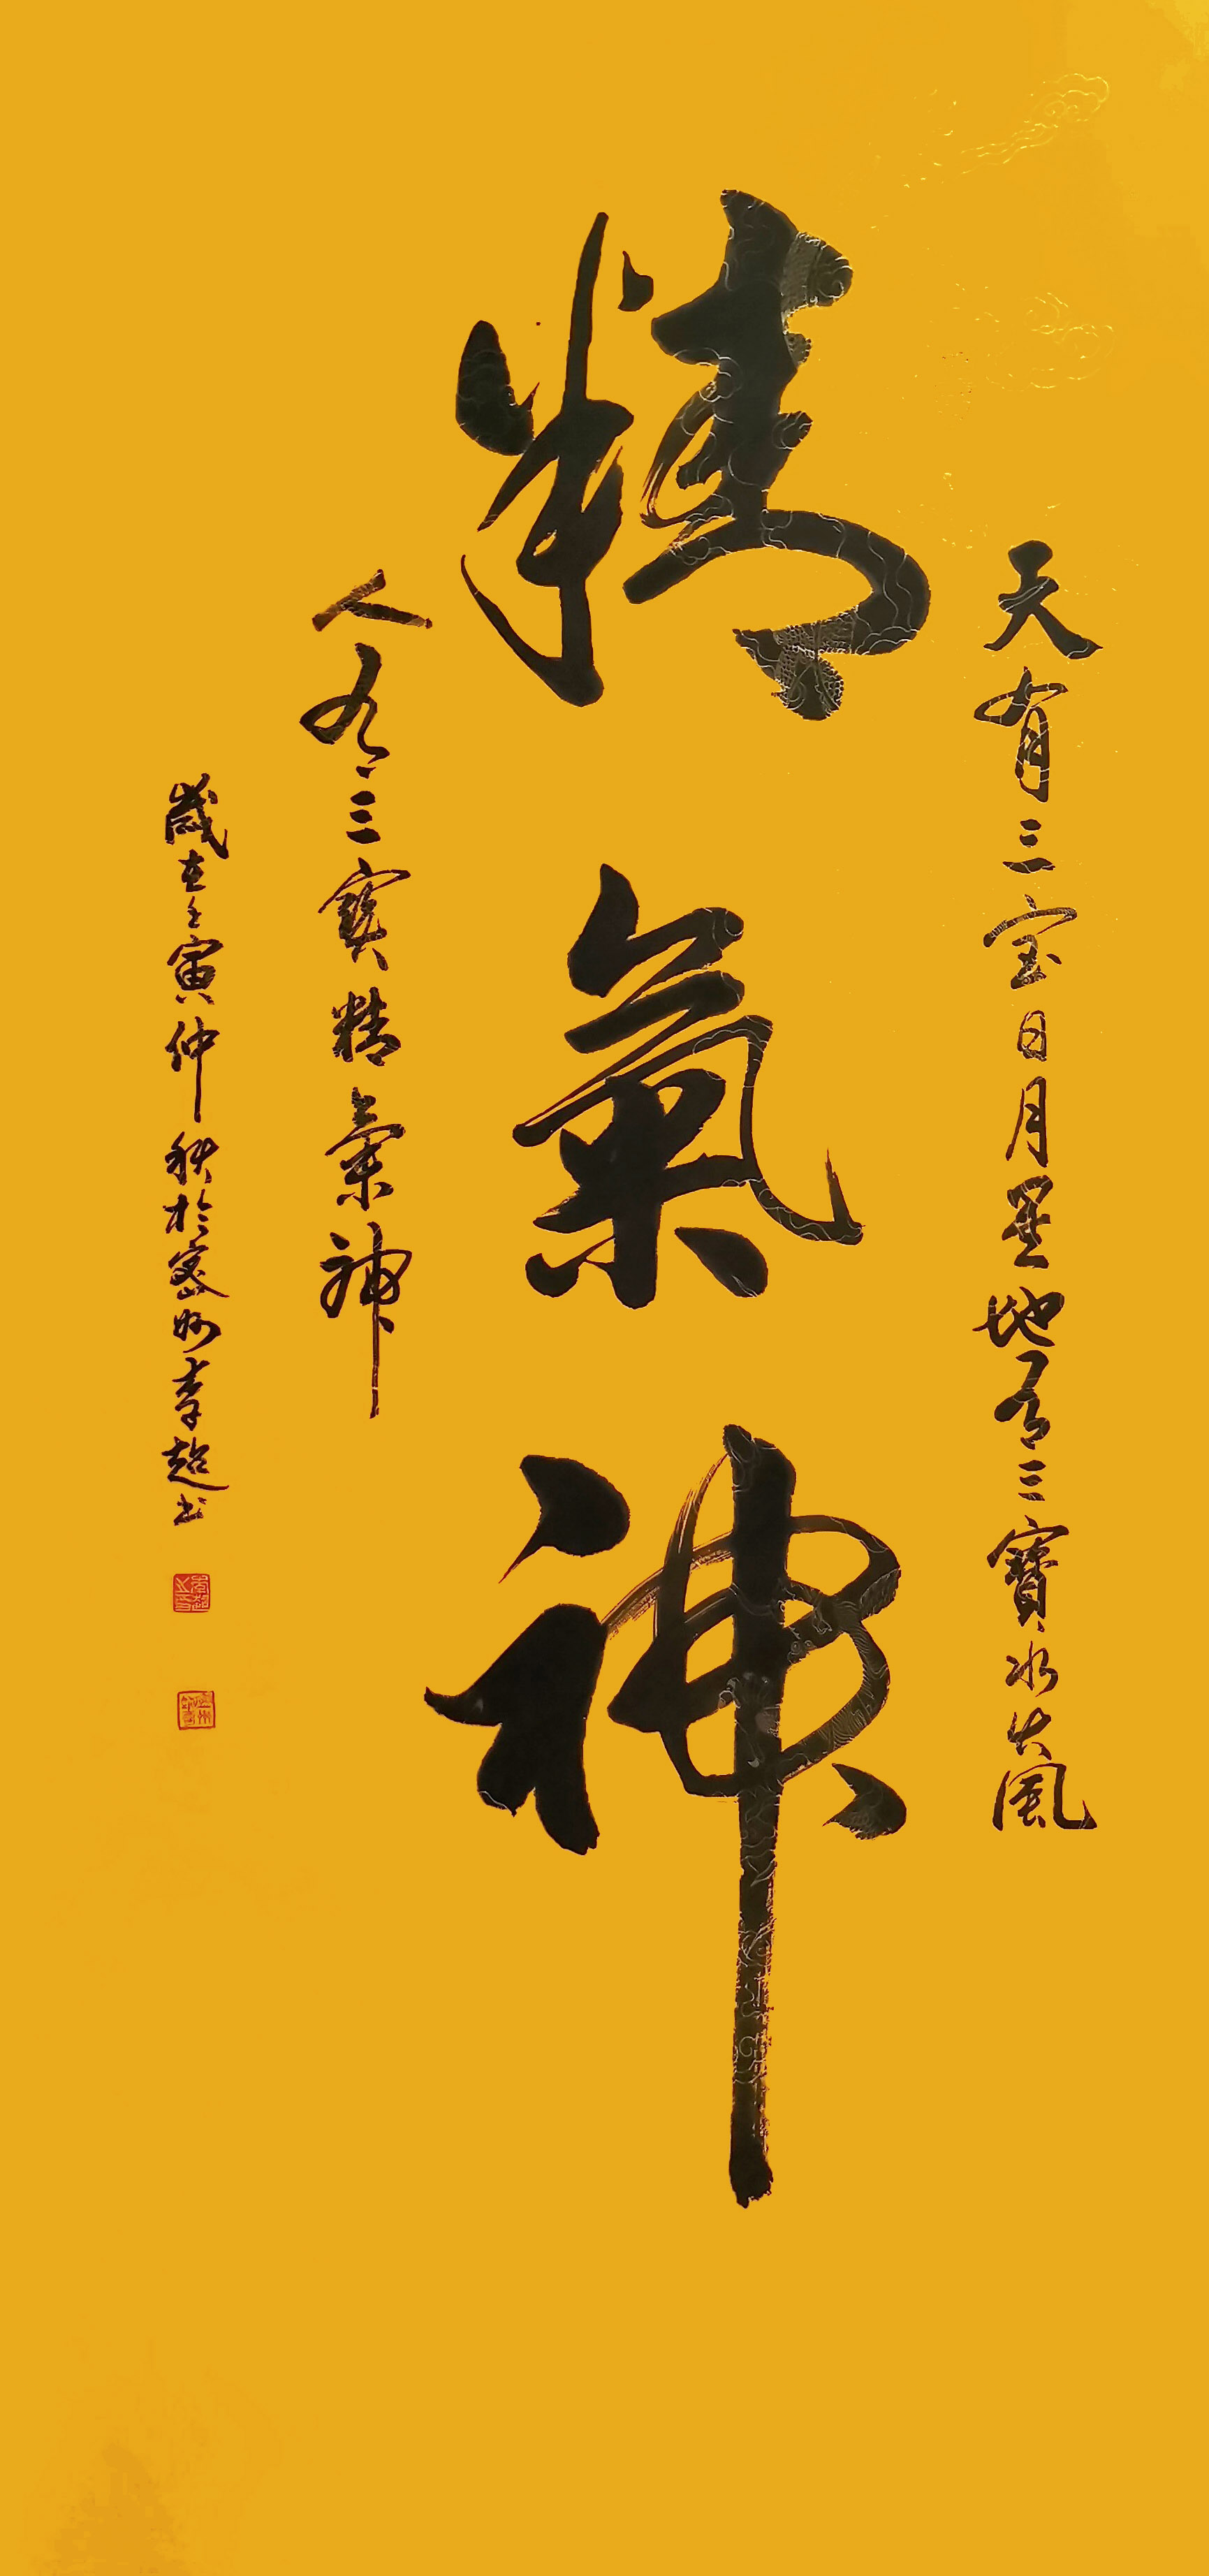 天有三宝日月星地有三寶水火風
精氣神
人有三寶精氣神
歲在壬寅仲秋於密州李超书